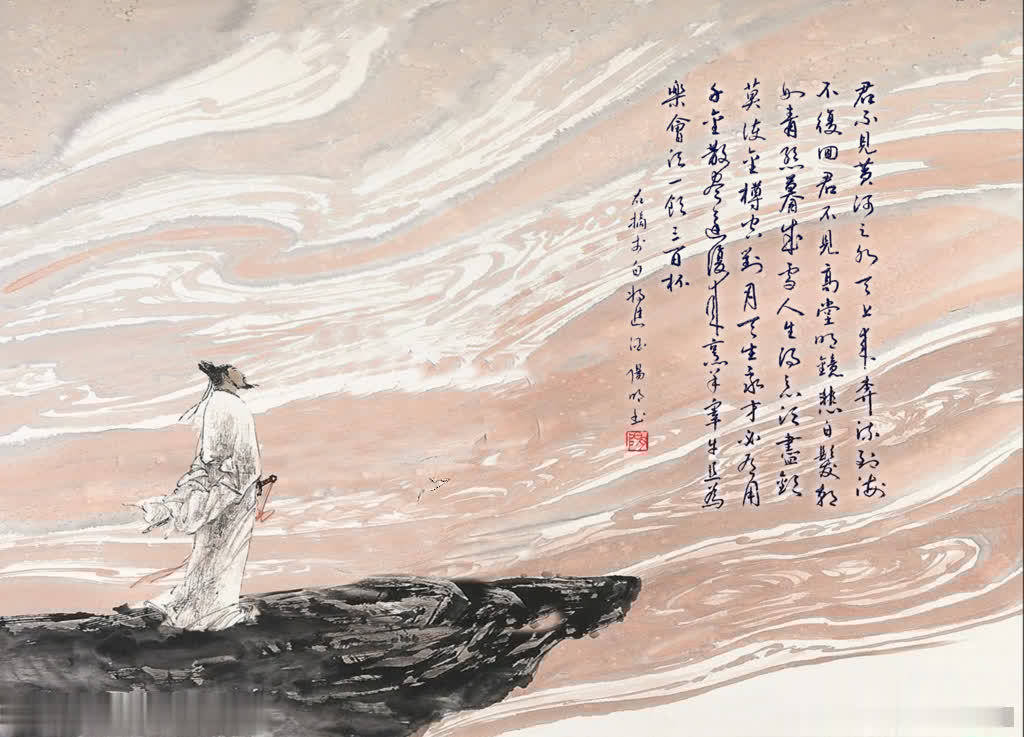 君不见黄河之水天上来奔流到海
不復回君不见高堂明鏡悲白髮朝
如青絲暮成雪人生得意须盡歡
莫使金樽空對月天生我才必有用
千金散盡還復来烹羊宰牛且為
樂會须一飲三百杯
右摘李白将進酒陽明书